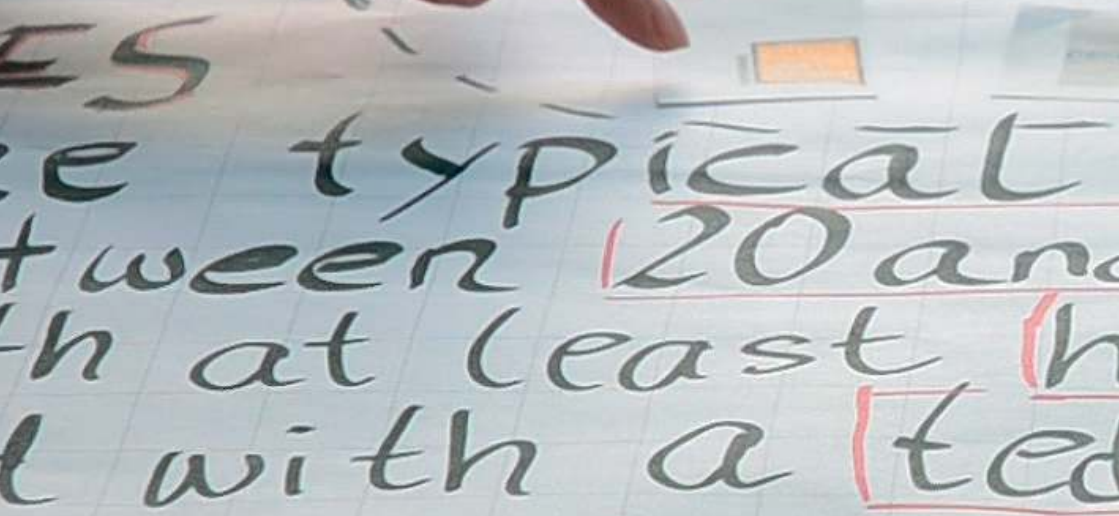 ES
e typical
tween 20 and
th at least h
l with a tec